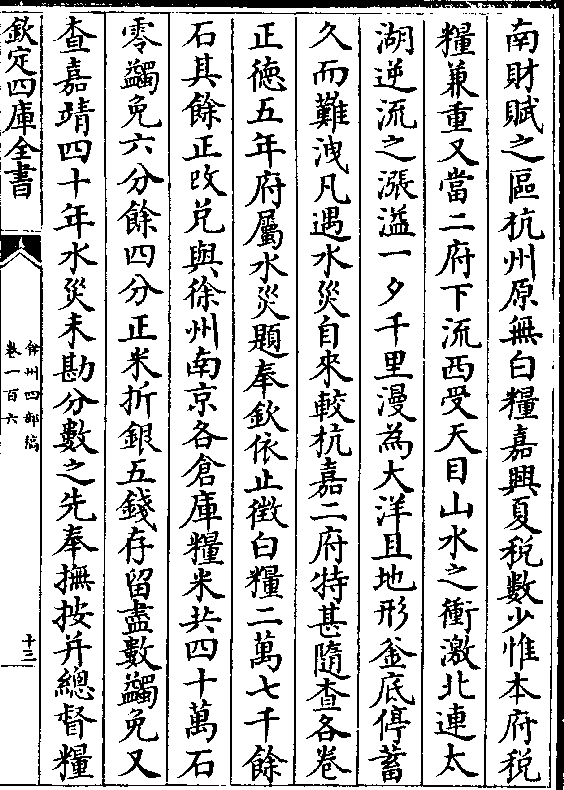 南財賦之區杭州原無白糧嘉興夏稅數少惟本府稅
糧兼重又當二府下流西受天目山水之衝激北連太
湖逆流之漲溢一夕千里漫為大洋且地形釜底停蓄
久而難洩凡遇水災自來較杭嘉二府特甚隨查各卷
正德五年府屬水災題奉欽依止徵白糧二萬七千餘
石其餘正改兌與徐州南京各倉庫糧米共四十萬石
零蠲免六分餘四分正米折銀五錢存留盡數蠲免又
查嘉靖四十年水災未勘分數之先奉撫按并總督糧
欽定四庫全書
弇州四部稿
卷一百六
十三